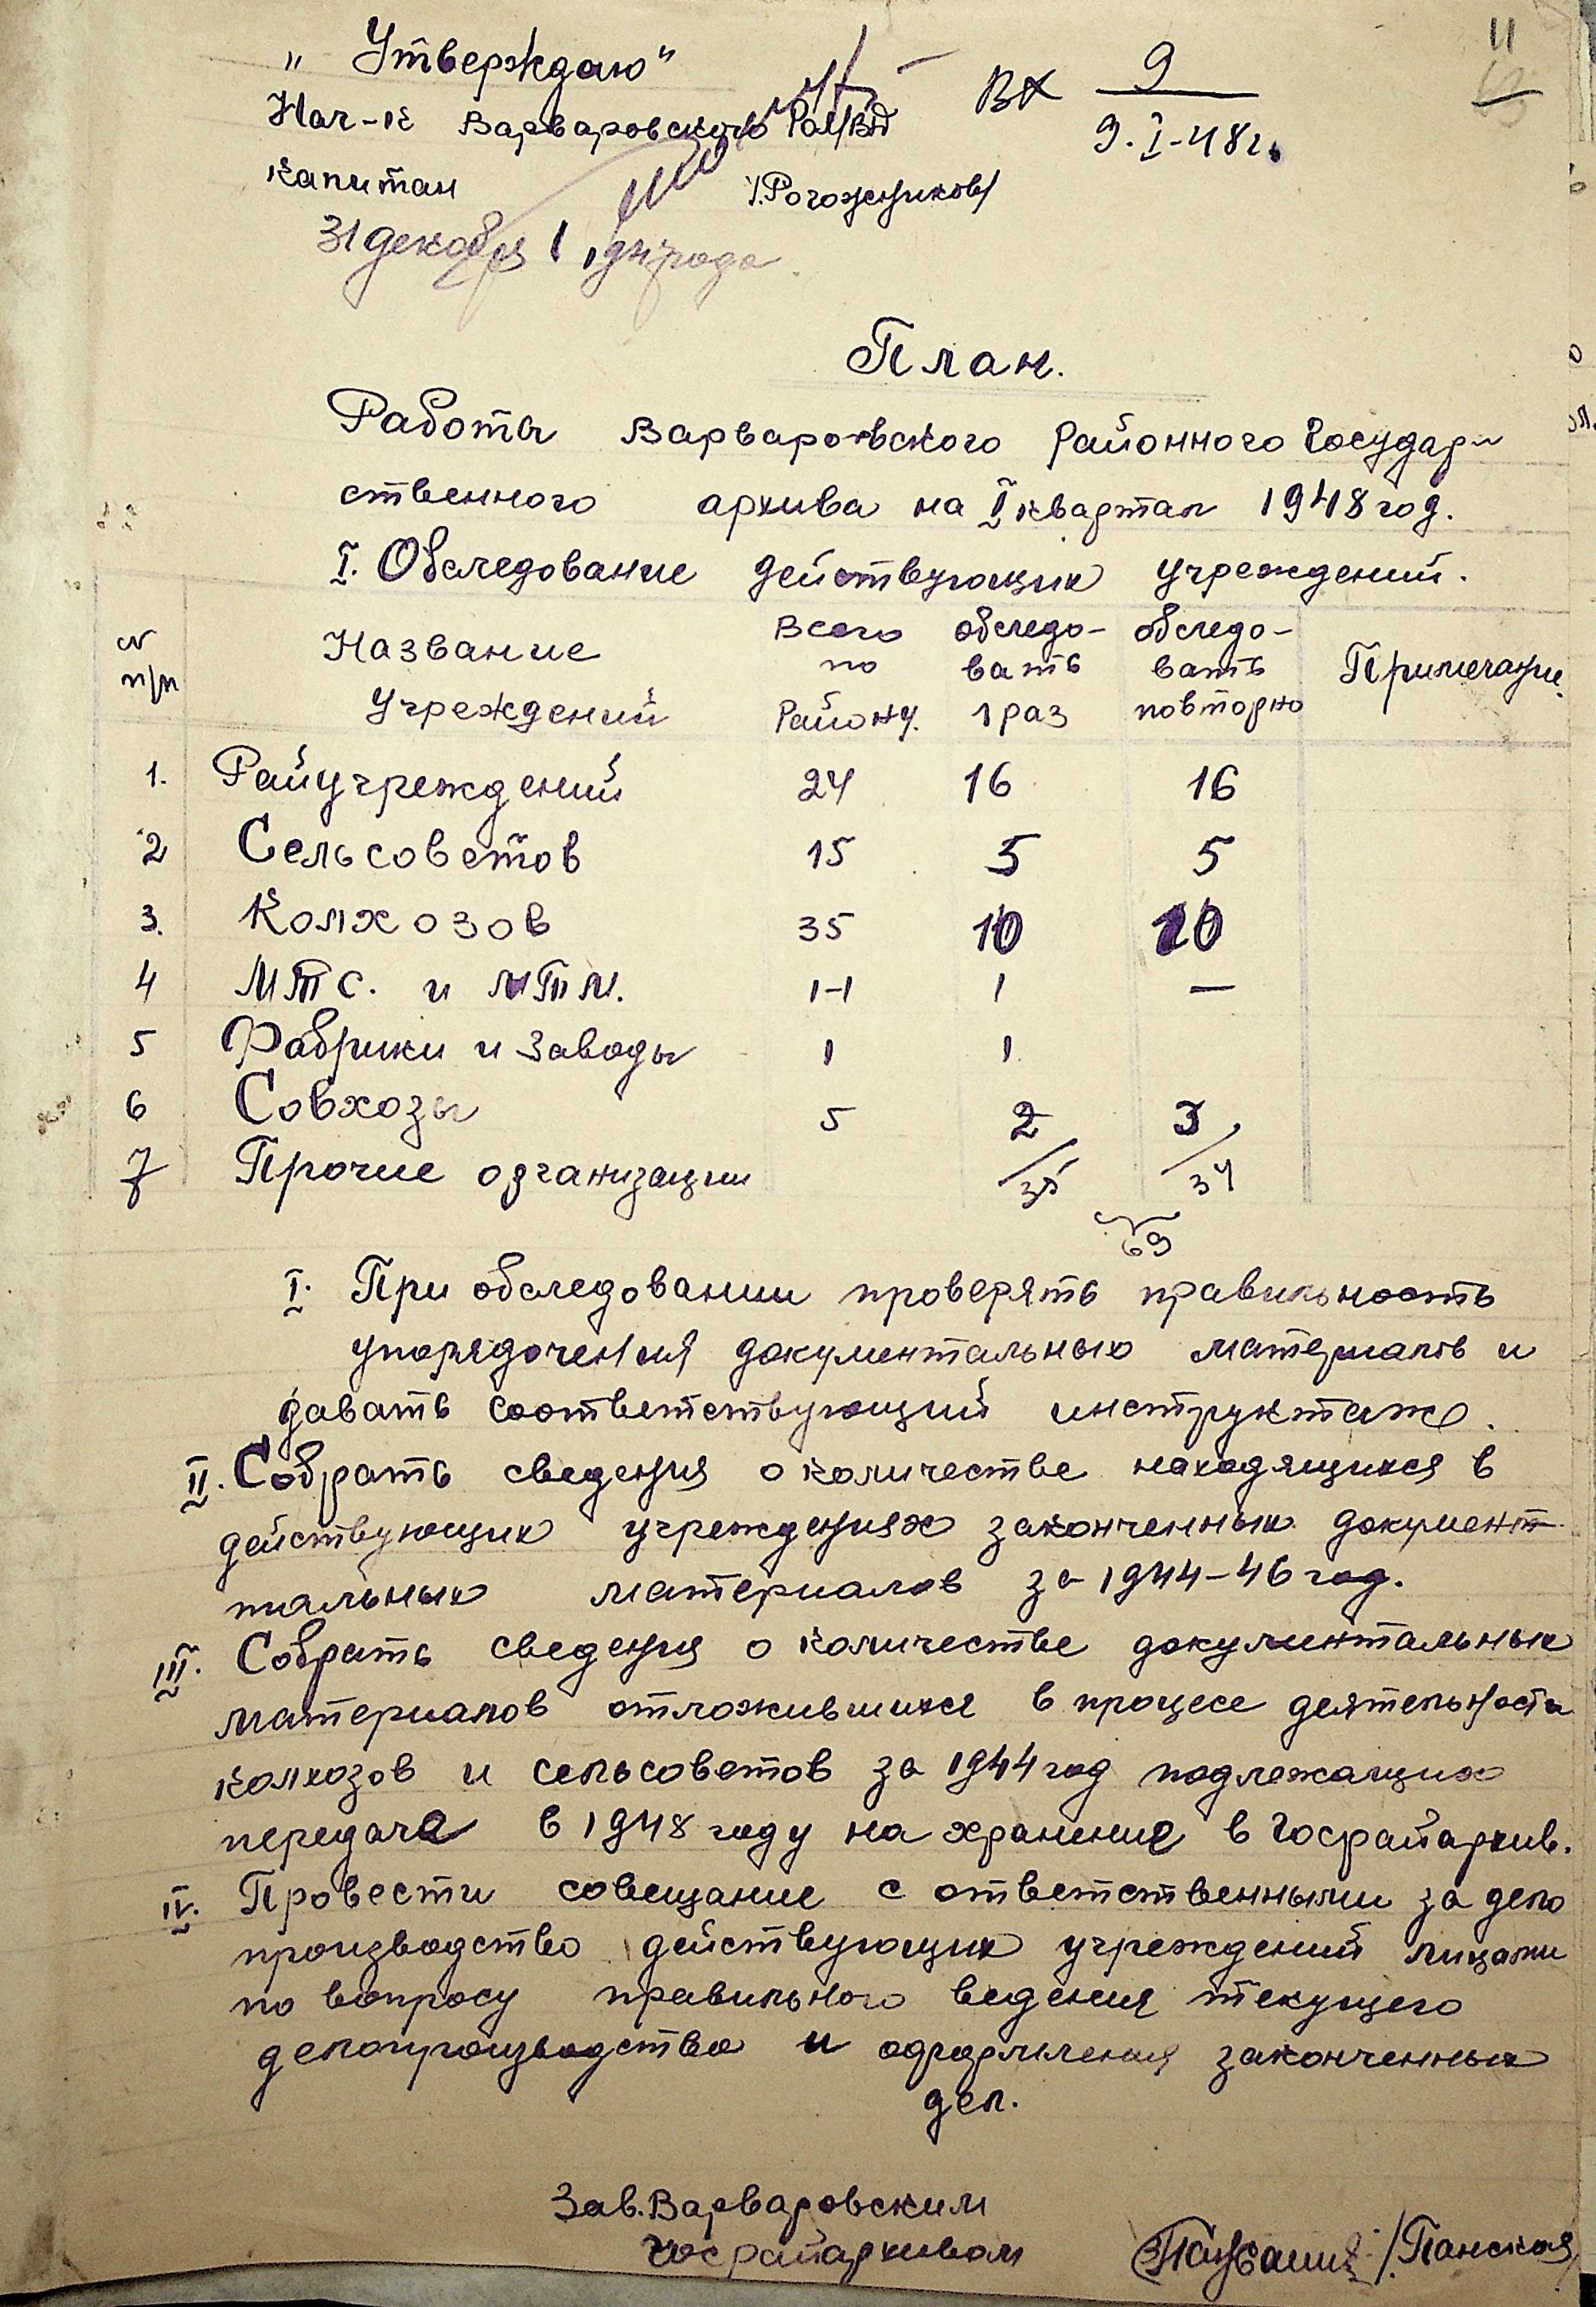 „ Утверждаю"
Нач-к Варваровского РайМВД
капитан /.Рогожников/
31 декабря 1947 года
Вх 9
9.I-48г.
11
План.
Работы Варваровского Районного Государ
ственного архива на I квартал 1948 год.
I. Обследование действующих учреждений.
№ п/п Название Учреждений Всего по Району. обследо- вать 1 раз обследо- вать повторно Примечание.
1. Райучреждений 24 16 16
2 Сельсоветов 15 5 5
3. Колхозов 35 10 10
4 МТС. и МТМ. 1-1 1 —
5 Фабрики и Заводы 1 1
6 Совхозы 5 2 3
7 Прочие организации
35 34
69
I. При обследовании проверять правильность
упорядочения документальных материалов и
давать соответствующий инструктаж.
II. Собрать сведения о количестве находящихся в
действующих учреждениях законченных документ
тальных материалов за 1944-46 год.
III. Собрать сведения о количестве документальных
материалов отложившихся в процесе деятельности
колхозов и сельсоветов за 1944 год подлежащих
передаче в 1948 году на хранение в Госрайархив.
IV. Провести совещание с ответственными за дело
производство действующих учреждений лицами
по вопросу правильного ведения текущего
делопроизводства и оформления законченных
дел.
Зав. Варваровским
Госрайархивом /.Панская/